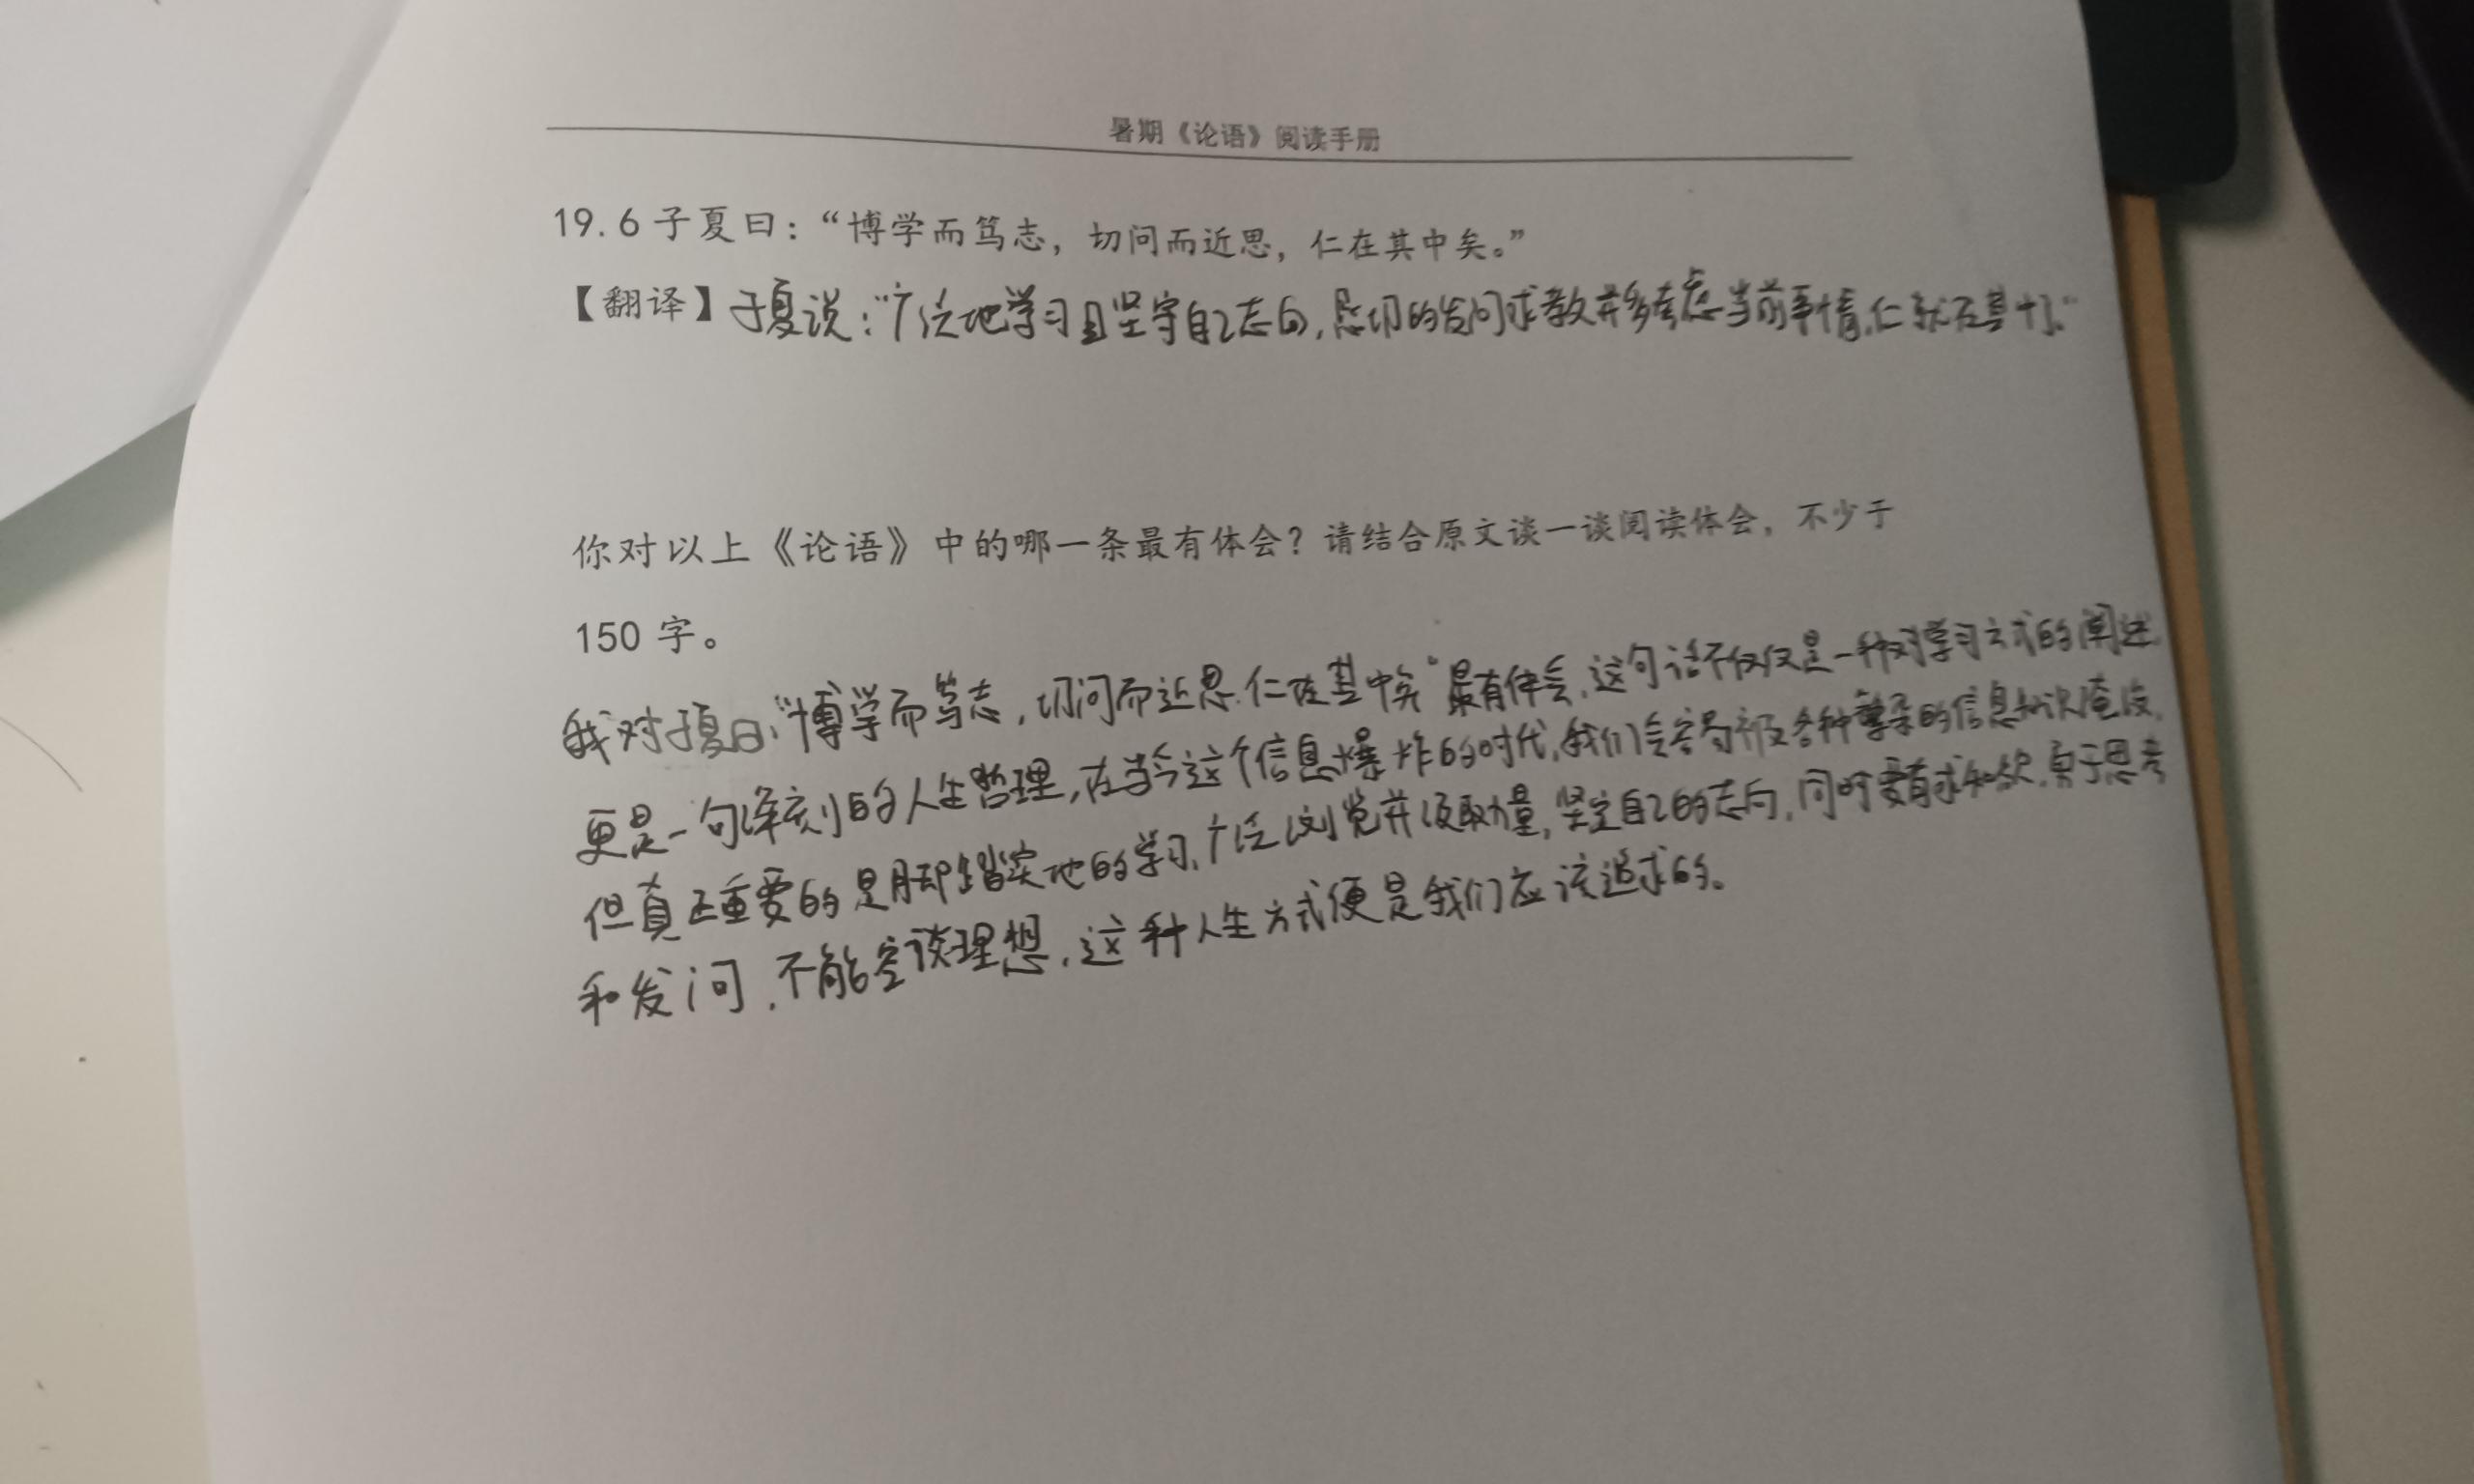 暑期《论语》阅读手册
19.6 子夏曰：“博学而笃志，切问而近思，仁在其中矣。”
【翻译】子夏说：“广泛地学习且坚守自己志向，恳切的发问求教并多考虑当前事情，仁就在其中了。”
你对以上《论语》中的哪一条最有体会？请结合原文谈一谈阅读体会，不少于
150 字。
我对子夏曰：“博学而笃志，切问而近思，仁在其中矣”最有体会，这句话不仅仅是一种对学习方式的阐述，
更是一句深刻的人生哲理，在当今这个信息爆炸的时代，我们会容易被各种的信息知识淹没，
但真正重要的是脚踏实地的学习，广泛浏览并汲取力量，坚定自己的志向，同时要有求知欲，勇于思考
和发问，不能空谈理想，这种人生方式便是我们应该追求的。